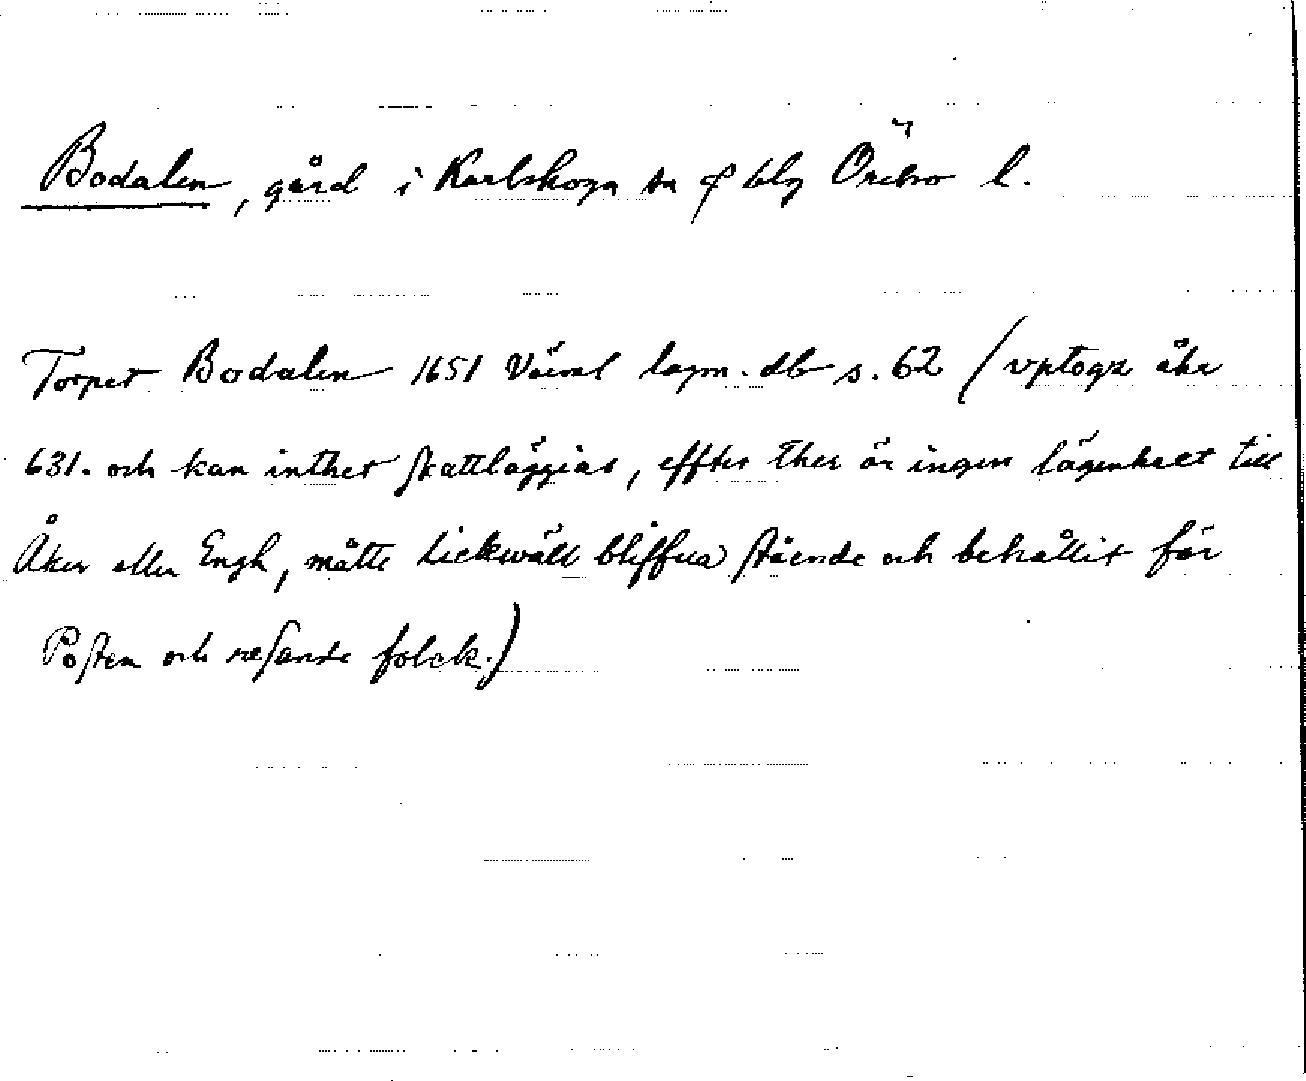 Bodalen, gård i Karlskoga sn o blg Örebro l.
Torpet Bodalen 1651 Värml lagm. db s. 62 (vptogz åhr
631. och kan inthet skattläggias, effter ther är ingen lägenheet till
Åker eller Engh, måtte lickwäll bliffua stående och behållit för
Posten och resande folck.)